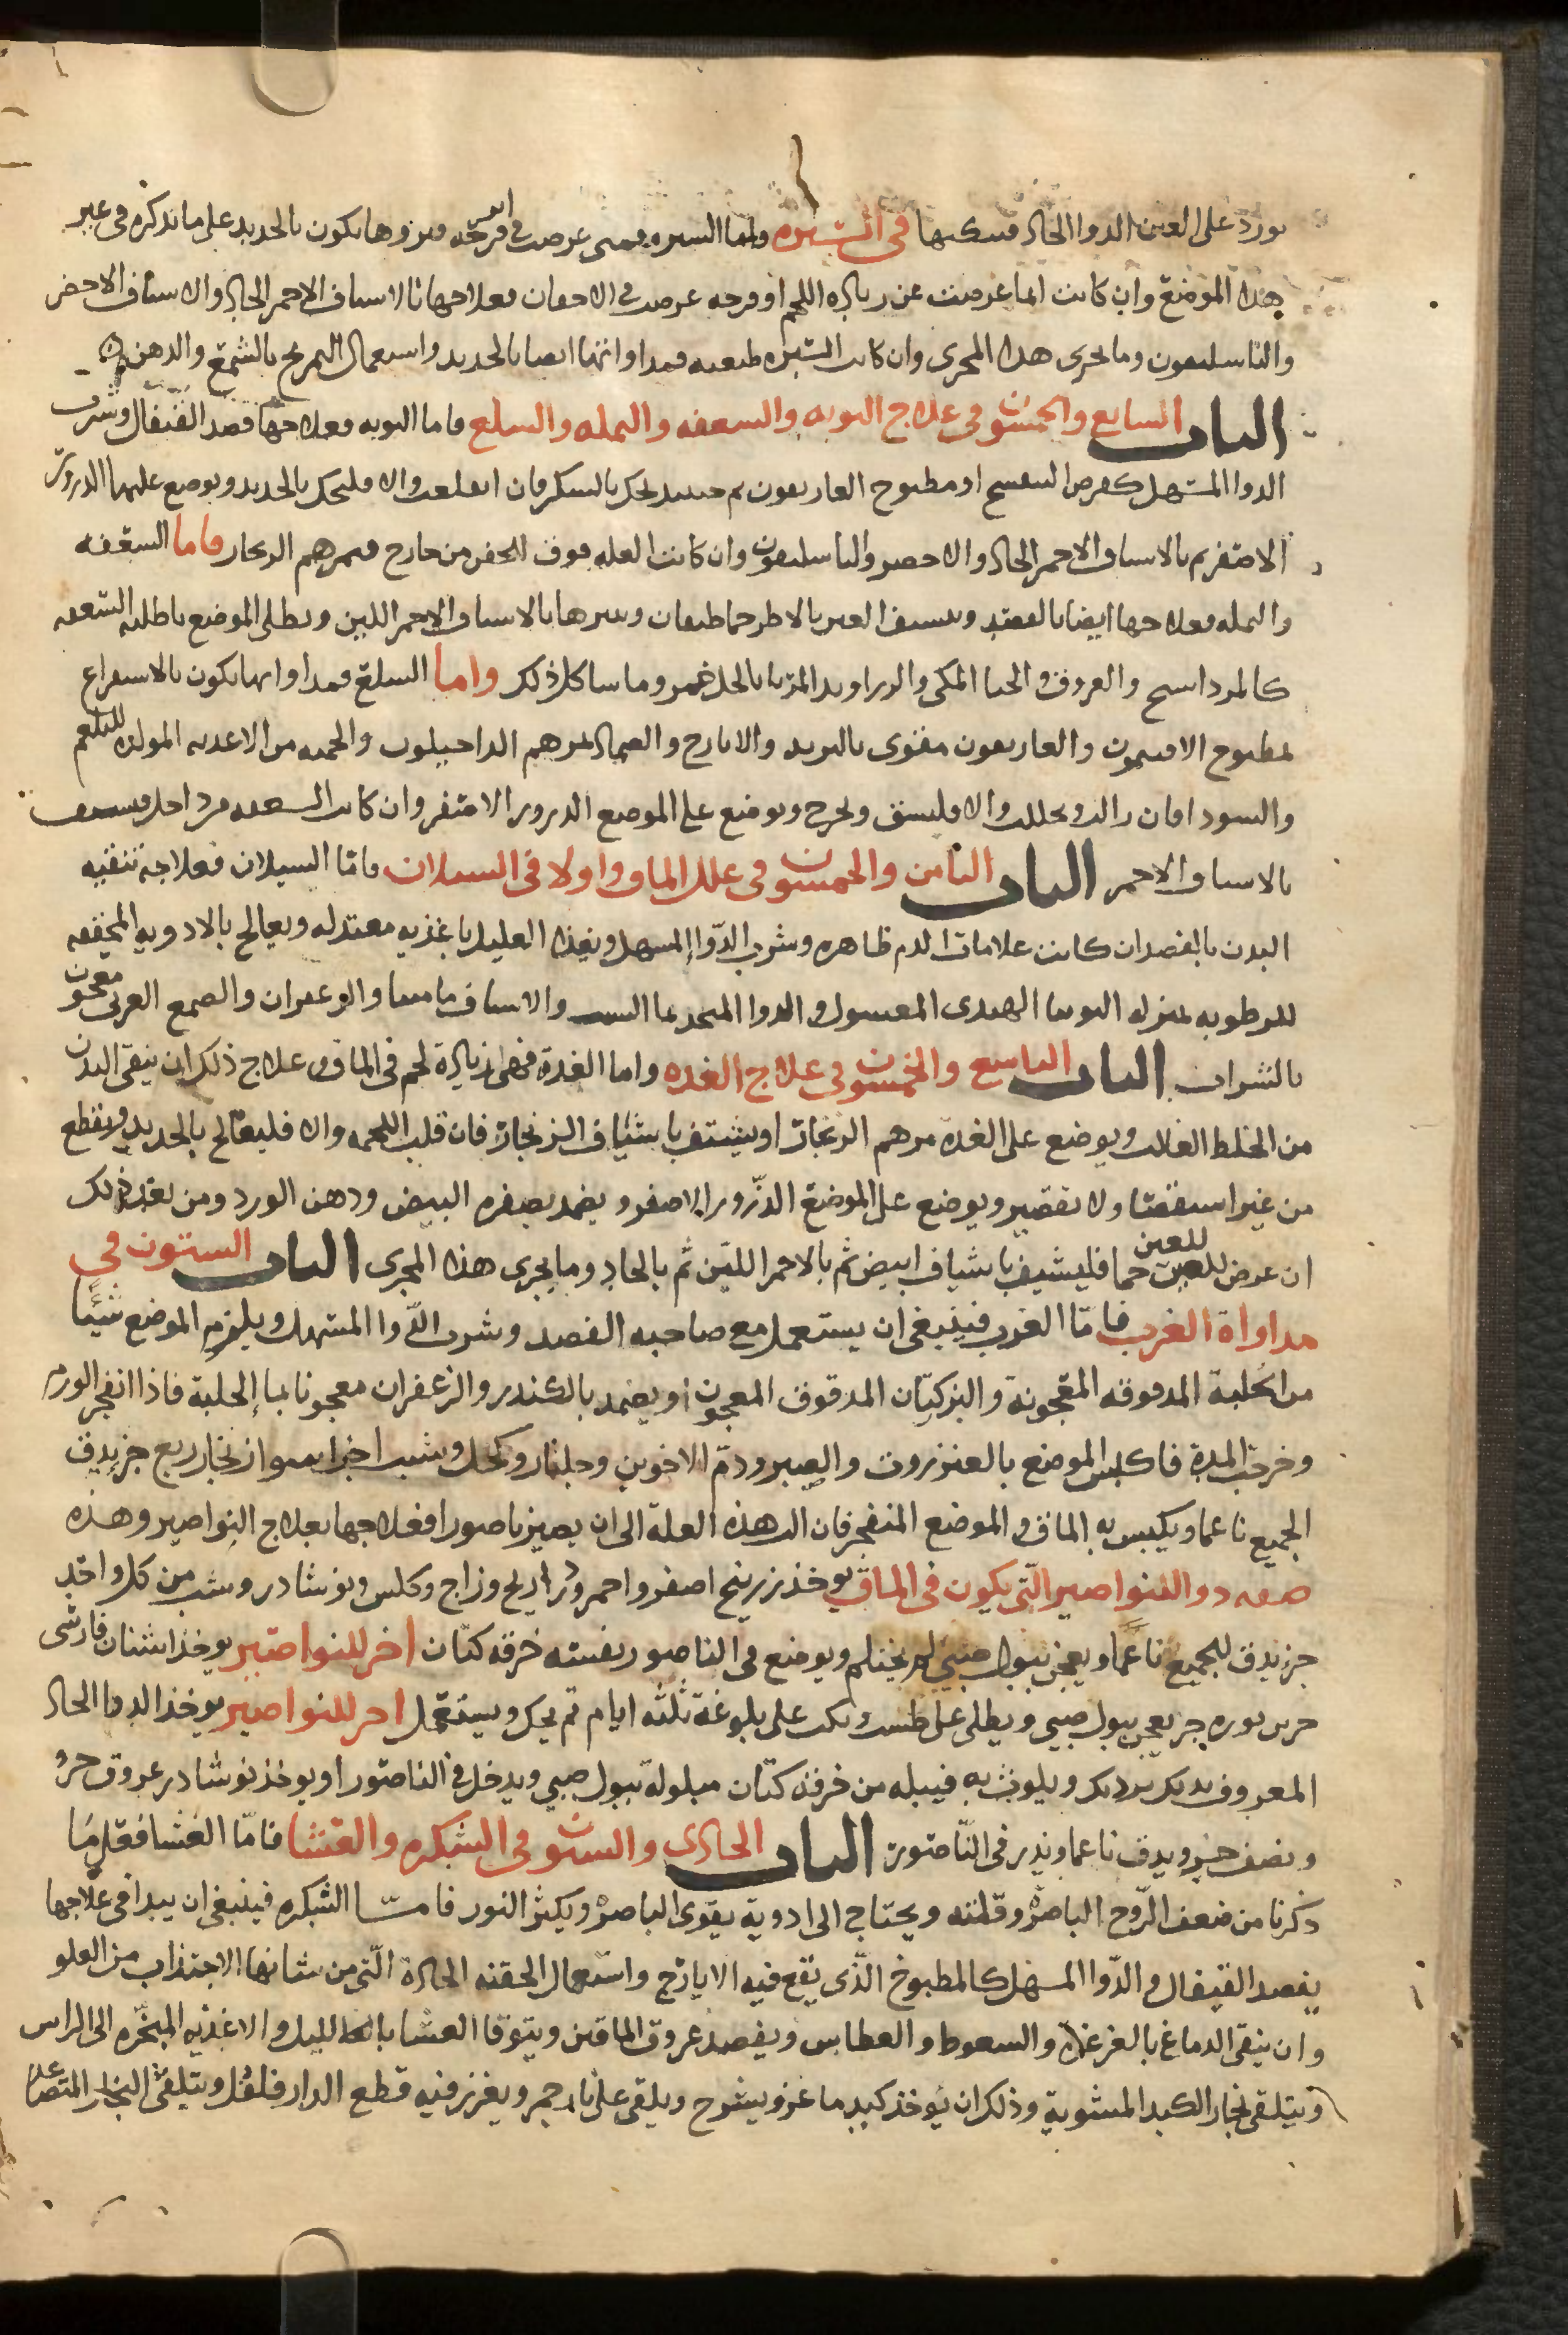 يورد على العين الدوا الحاد فتنكيها في الشتره واما الشتره فمتى عرضت في اثر قرحه فبروها يكون بالحديد على ما نذكره في غير
هذا الموضع وان كانت انما عرضت عن زياده اللحم او قرحه عرضت في الاجفان فعلاجها بالاشياف الاحمر الحاد والاشياف الاخضر
والباسليقون وما يجرى هذا المجرى وان كانت الشتره طبيعيه فمداواتها ايضا بالحديد واستعمال التمريخ بالشمع والدهن
الباب السابع والخمسون في علاج التوته والسعفه والنمله والسلع فاما التوته فعلاجها فصد القيفال وشرب
الدوا المسهل كقرص البنفسج او مطبوخ الغاريقون ثم حينئذ تحك بالسكر فان انقلعت والا فلتحك بالحديد ويوضع عليها الذرور
الاصفر ثم بالاشياف الاحمر الحاد والاخضر والباسليقون وان كانت العله فوق الجفن من خارج فمرهم الزنجار فاما السعفه
والنمله فعلاجها ايضا بالفصد وتشيف العين بالاطرخماطيقان وغيرها بالاشياف الاحمر اللين ويطلى الموضع باطليه السعفه
كالمرداسنج والعروق والحنا المكى والزراوند المربا بالخل خمر وما شاكل ذلك واما السلع فمداواتها يكون بالاستفراغ
بمطبوخ الافتيمون والغاريقون مقوى بالتربد والايارج والضماد بمرهم الداخيلون والحميه من الاغذيه المولده للبلغم
والسودا فان زالت وتحللت والا فليشق ويخرج ويوضع على الموضع الذرور الاصفر وان كانت السعفه من داخل فتشيف
بالاشياف الاحمر الباب الثامن والخمسون في علل الماق واولا في السيلان فاما السيلان فعلاجه تنقيه
البدن بالفصد ان كانت علامات الدم ظاهره وشرب الدوا المسهل ويغذا العليل باغذيه معتدله ويعالج بالادويه المجففه
للرطوبه بمنزله التوتيا الهندى المغسول والدوا المتخذ بما والاشياف ماميثا والزعفران والصمغ العربى معجون
بالشراب الباب التاسع والخمسون في علاج الغده واما الغدة فهى زيادة لحم في الماق وعلاج ذلك ان ينقى البدن
من الخلط الغالب ويوضع على الغدة مرهم الزنجار او يشيف باشياف الزنجار فان قلب اللحمه والا فليعالج بالحديد ويقطع
من غير استقصا ولا تقصير ويوضع على الموضع الذرور الاصفر ويضمد بصفره البيض ودهن الورد ومن بعد ذلك
ان عرض للعين للعين حما فليشيف باشياف ابيض ثم بالاحمر اللين ثم بالحاد وما يجرى هذا المجرى الباب الستون في
مداواة الغرب فامّا الغرب فينبغى ان يستعمل مع صاحبه الفصد وشرب الدّوا المسهل ويلزم الموضع شيئًا
من الحلبة المدقوقه المعجونة والبزر كتان المدقوق المعجون او يضمد بالكندر والزعفران معجونا بما الحلبة فاذا انفجر الورم
وخرجت المدة فاكبس الموضع بالعنزروت والصبر ودم الاخوين وجلنار وكحل وشب اجزا سوا زنجار ربع جز يدق
الجميع ناعما ويكبس به الماق والموضع المنفجر فان الت هذه العلة الى ان يصير ناصورا فعلاجها بعلاج النواصير وهذه
صفه دوا للنواصير التّى يكون في الماق يوخذ زرنيخ اصفر واحمر وذراريح وزاج وكلس ونوشادر وشب من كل واحد
جز يدق الجميع ناعما ويعجن ببول صبى لم يحتلم ويوضع في الناصور بفتيله خرقه كتان اخر للنواصير يوخذ اشنان فارسى
جز يعجن ببول صبي ويطلى على طست ويكب على بلوعة ثلثه ايام ثم يحك ويستعمل اخر للنواصير يوخذ الدوا الحاد
المعروف بديك برديك ويلوث به فتيله من خرقه كتان مبلولة ببول صبي ويدخل في الناصور او يوخذ نوشادر عروق جز
ونصف جز ويدق ناعما ويذر في النّاصور الباب الحادى والستون في الشبكره والعشا فامّا العشا فعلى ما
ذكرنا من ضعف الرّوح الباصره وقلته ويحتاج الى ادوية يقوى الباصره ويكثر النور فامّا الشبكره فينبغى ان يبدا في علاجها
بفصد القيفال والدّوا المسهل كالمطبوخ الذّى يقع فيه الايارج واستعمال الحقنه الحادة الّتى من شانها الاجتذاب من العلو
وان ينقى الدماغ بالغرغره والسعوط والعطاس ويفصد عروق الماقين ويتوقا العشا بالليل والاغذيه المبخّره الى الراس
ويتلقى بخار الكبد المشوية وذلك ان يوخذ كبد ماعز ويشرح ويلقى على نار جمر ويغرز فيه قطع الدار فلفل ويتلقى البخار المتصاعد